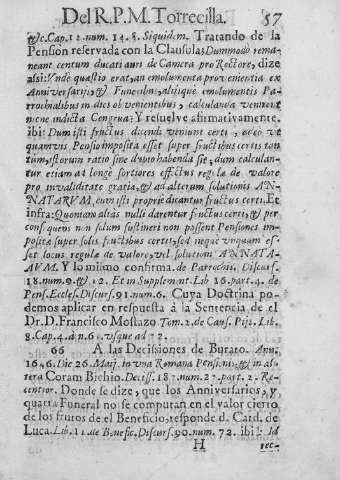 Del R. P. M. Torrecilla. 57
&c. Cap. 12. num. 14. §. Siquidem. Tratando de la
Pension reservada con la Clausula: Dummodo rema-
neant centum ducati auri de Camera pro Rectore, dize
assi: Vnde quæstio erat, an emolumenta provenientia ex
Anniversarijs, & Funeribus, alijsque emolumentis Pa-
rrochialibus in dies obvenientibus, calculanda venirent
nene indicta Congrua: Y resuelve afirmativamente,
ibi: Dum isti fructus dicendi veniunt certi, adeò ve
quamvis Pensio imposita esset super fructibus certis ton
tum, istorum ratio sine dubio habenda sit, dum calculan-
tur etiam ad longè fortiores effectus regulæ de valore
pro invaliditate gratiæ, & ad alterum solutionis AN-
NATARVM, cum isti propriè dicantur fructus certi. Et
infra: Quoniam aliàs nulli darentur fructus certi, & per
consequens non solum sustineri non possent Pensiones im-
positæ super solis fructibus certis, sed neque vnquam es-
set locus regulæ de valore, vel solutioni ANNATA-
RVM. Y lo mismo confirma de Parrochis. Discurs.
18. num. 9. & 12. Et in Supplement. Lib. 16. part. 4. de
Pens. Eccles. Discurs. 91. num. 6. Cuya Doctrina po-
demos aplicar en respuesta à la Sentencia de el
Dr. D. Francisco Mostazo Tom. 2. de Caus. Pijs. Lib.
8. Cap. 4. à n. 6. vsque ad 12.
66 A las Decissiones de Burato. Ann.
1646. Die 26. Maij. in vna Romana Pensionis; & in al-
tera Coram Bichio. Deciss. 187. num. 27. part. 2. Re-
centior. Donde se dize, que los Anniversarios, y
quarta Funeral no se computan en el valor cierto
de los frutos de el Beneficio, responde d. Card. de
Luca. Lib. 12. de Benefic. Discurs. 90. num. 72. ibi: Id
H rec-